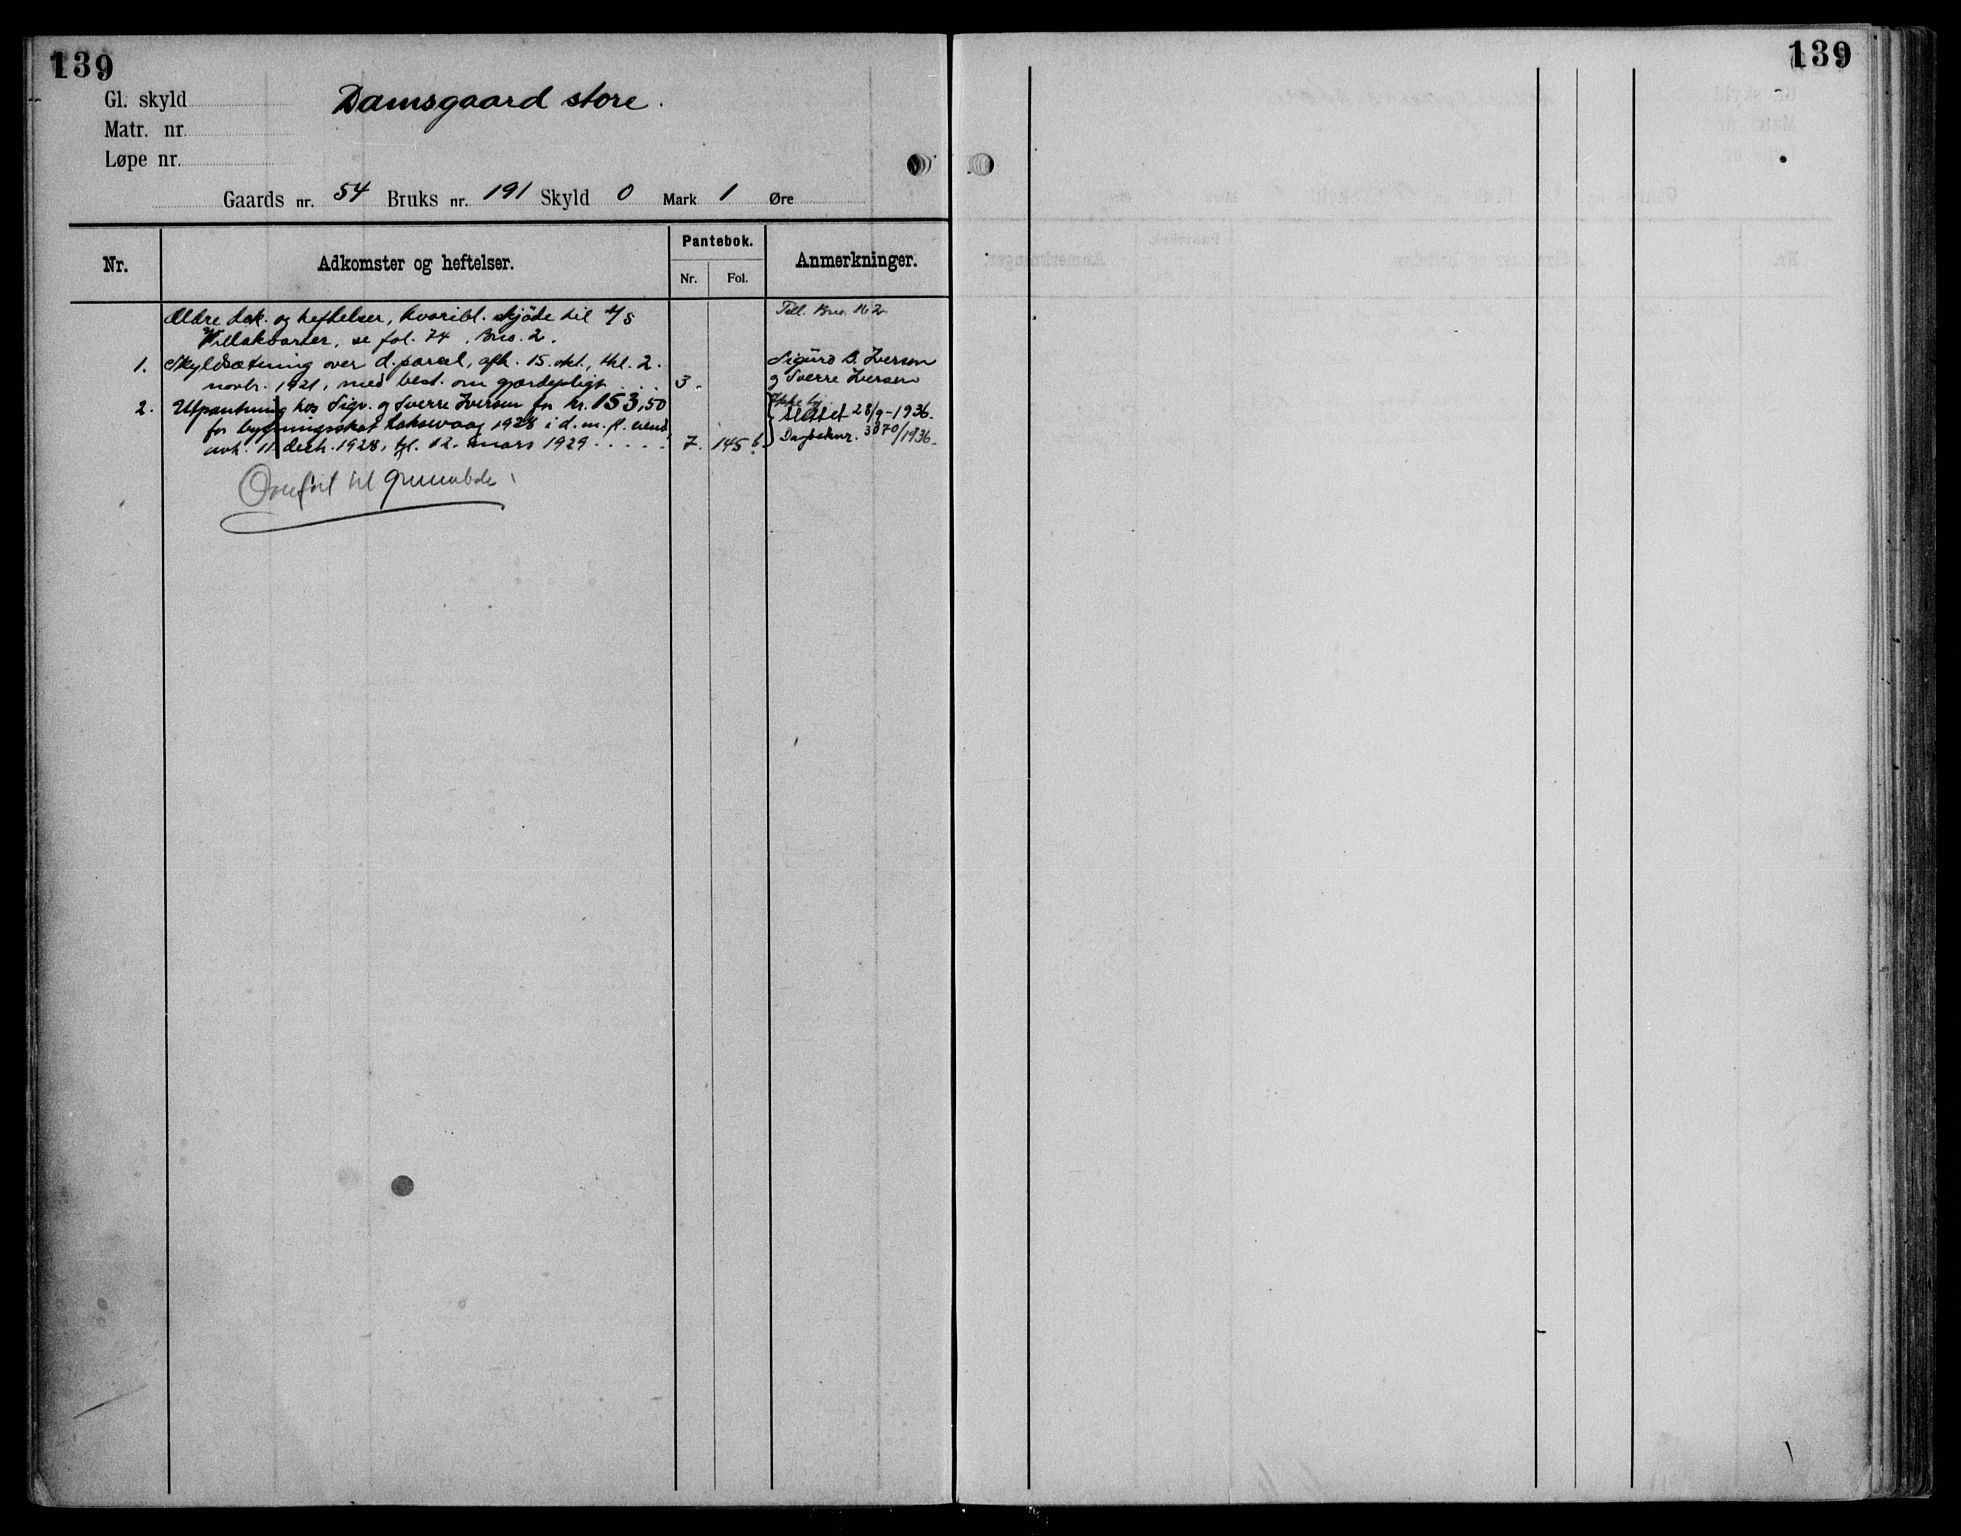 139
139
Gl. skyld
Damsgaard store.
Matr. nr.
Løpe nr.
Gaards nr. 54 Bruks nr. 191 Skyld 0 Mark 1 Øre
Nr.
Adkomster og heftelser.
Pantebok.
Nr.
Fol.
Anmerkninger.
Ældre dok. og heftelser, hvoribl. skjöde til A/S
Till. Bno. 162
Villakvarter, se fol. 74, Bno. 2.
1. Skyldsætning over d. parcel, afh. 15. okt., thl. 2.
Sigurd B. Iversen
novbr. 1921, med best. om gjærdepligt . . . . 3.
og Sverre Iversen
2. Utpantning hos Sigv. og Sverre Iversen for kr. 153,50
for bygningsskat Laksevaag 1928 i d. m. fl. eiend.
slettet 28/9-1936.
avh. 11 decb. 1928, tgl. 12. mars 1929 . . . . . 7. 145b.
Dagboknr. 3070/1936.
Overført til grunnbok